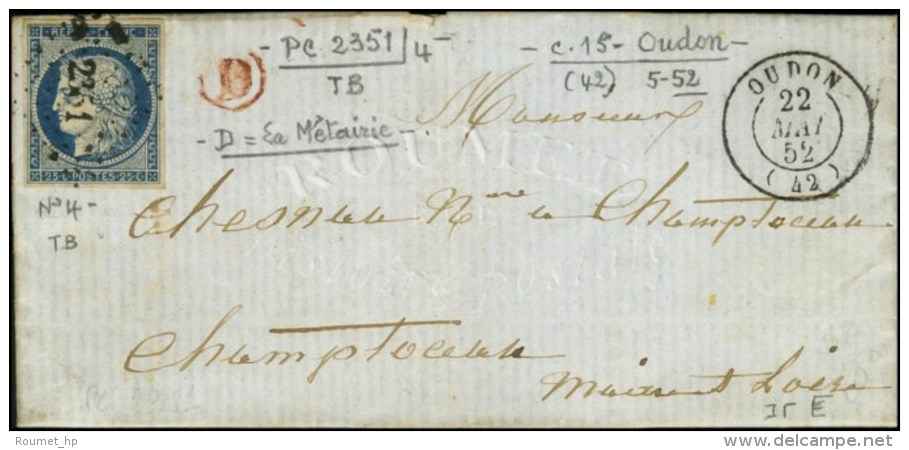 REPUB. FRANC.
2351
25 c. POSTES 25 c.
D
- PC. 2351 / 4 -
TB
- c. 15 - Oudon -
(42) 5-52
OUDON
22
MAI
52
(42)
- D = La Métairie -
Monsieur
ROUMET
N° 4 -
TB
Chesneau Nre a Champtoceau
Champtoceau
Maine et Loire
Ir E
Roumet_hp
delcampe.net